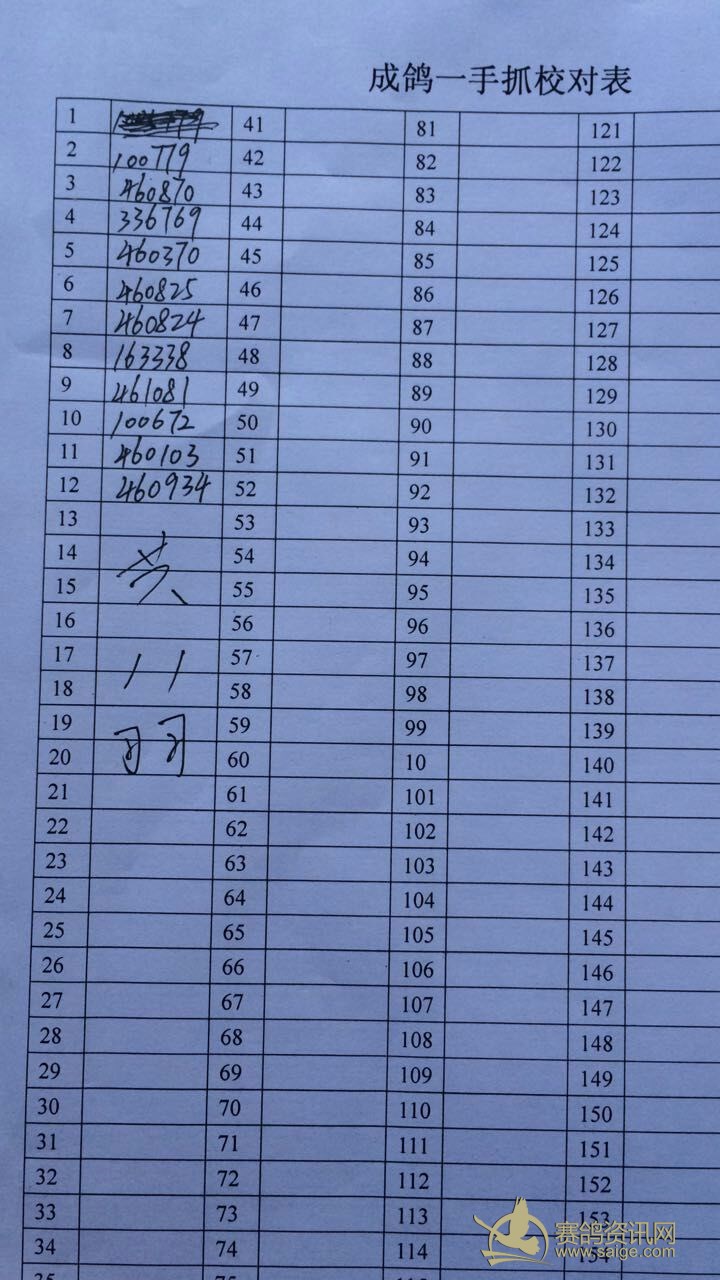 成鸽一手抓校对表
1 41 81 121
2 100779 42 82 122
3 460870 43 83 123
4 336769 44 84 124
5 460370 45 85 125
6 460825 46 86 126
7 460824 47 87 127
8 163338 48 88 128
9 461081 49 89 129
10 100672 50 90 130
11 460103 51 91 131
12 460934 52 92 132
13 53 93 133
14 共 54 94 134
15 55 95 135
16 56 96 136
17 11 57 97 137
18 58 98 138
19 羽 59 99 139
20 60 10 140
21 61 101 141
22 62 102 142
23 63 103 143
24 64 104 144
25 65 105 145
26 66 106 146
27 67 107 147
28 68 108 148
29 69 109 149
30 70 110 150
31 71 111 151
32 72 112 152
33 73 113 153
34 74 114 154
赛鸽资讯网
www.saige.com